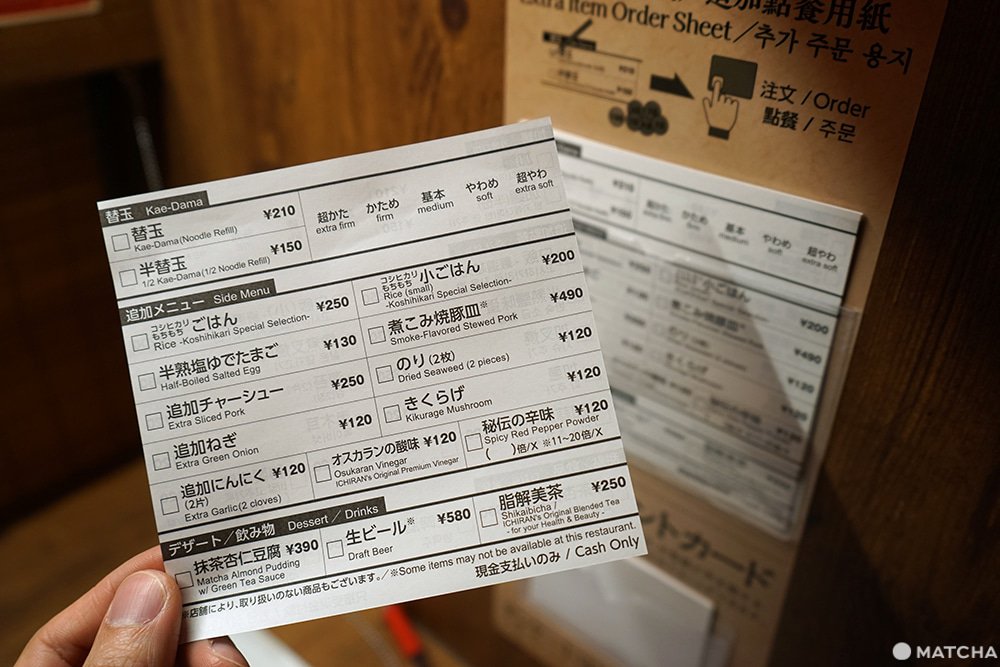 追加點餐用紙
Extra Item Order Sheet／추가 주문 용지
注文 / Order
點餐 / 주문
替玉 Kae-Dama
替玉 ¥210
Kae-Dama(Noodle Refill)
半替玉 ¥150
1/2 Kae-Dama(1/2 Noodle Refill)
超かた かため 基本 やわめ 超やわ
extra firm firm medium soft extra soft
追加メニュー Side Menu
コシヒカリ もちもち ごはん ¥250
Rice -Koshihikari Special Selection-
コシヒカリ もちもち 小ごはん ¥200
Rice (small)
-Koshihikari Special Selection-
半熟塩ゆでたまご ¥130
Half-Boiled Salted Egg
煮こみ焼豚皿※ ¥490
Smoke-Flavored Stewed Pork
追加チャーシュー ¥250
Extra Sliced Pork
のり(2枚) ¥120
Dried Seaweed (2 pieces)
追加ねぎ ¥120
Extra Green Onion
きくらげ ¥120
Kikurage Mushroom
追加にんにく ¥120
(2片)
Extra Garlic(2 cloves)
オスカランの酸味 ¥120
Osukaran Vinegar
ICHIRAN's Original Premium Vinegar
秘伝の辛味 ¥120
Spicy Red Pepper Powder
( )倍/X ※11~20倍/X
デザート／飲み物 Dessert／Drinks
抹茶杏仁豆腐 ¥390
Matcha Almond Pudding
w/ Green Tea Sauce
生ビール※ ¥580
Draft Beer
脂解美茶 ¥250
Shikaibicha /
ICHIRAN's Original Blended Tea
- for your Health & Beauty -
※店舗により、取り扱いのない商品もございます。／※Some items may not be available at this restaurant.
現金支払いのみ / Cash Only
かため 基本 やわめ 超やわ
firm medium soft extra soft
小ごはん ¥200
煮こみ焼豚皿 ¥490
¥120
¥120
ントカード
MATCHA